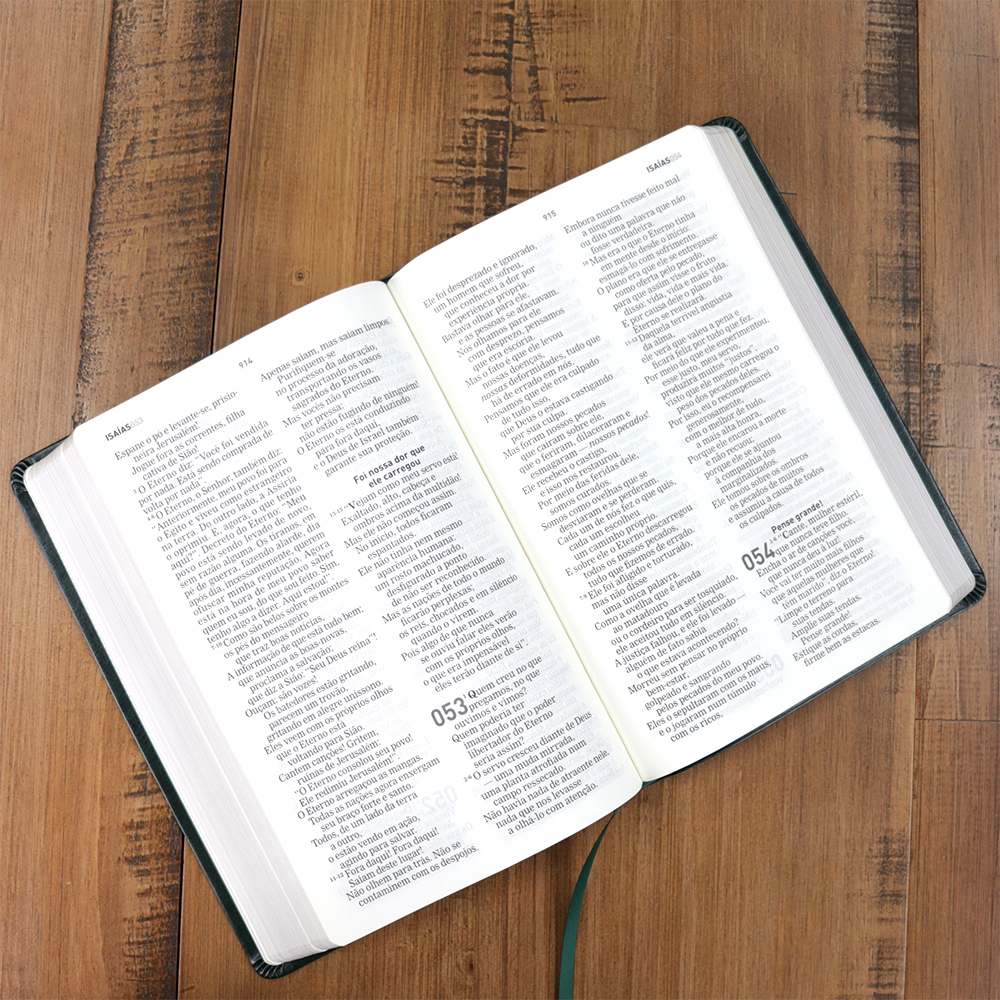 ISAÍAS053
914
Espane o pó e levante-se, prisio-
neira Jerusalém!
Jogue fora as correntes, filha
cativa de Sião.
3 O Eterno diz: “Você foi vendida
por nada. Está sendo comprada de
volta por nada”.
4-6 O Eterno, o Senhor, também diz:
“Anteriormente, meu povo foi para
o Egito e viveu como estrangeiro
na terra. Do outro lado, a Assíria
o oprimiu. E, agora, o que tenho
aqui?”. Decreto do Eterno. “Meu
povo está sendo levado de novo,
sem razão alguma. Os tiranos, em
pé de guerra, fazendo alarde, dia
após dia, incessantemente, querem
ofuscar minha reputação. Agora
está na hora de meu povo saber
quem eu sou, do que sou feito. Sim,
tenho algo a dizer. Aqui estou!”.
7-10 Como são belos sobre os montes
os pés do mensageiro
que traz boas notícias,
A informação de que está tudo bem:
que anuncia as boas-novas,
proclama a salvação,
que diz a Sião: “Seu Deus reina”!
Ouçam: são vozes!
Os batedores estão gritando,
parecem um trovão,
gritando em alegre uníssono.
Eles veem com os próprios olhos
que o Eterno está
voltando para Sião.
Cantem canções! Gritem,
ruínas de Jerusalém!
“O Eterno consolou seu povo!
Ele redimiu Jerusalém!”.
O Eterno arregaçou as mangas.
Todas as nações agora enxergam
seu braço forte e santo.
Todos, de um lado da terra
a outro,
o estão vendo em ação,
agindo para salvar.
11-12 Fora daqui! Fora daqui!
Saiam deste lugar!
Não olhem para trás. Não se
contaminem com os despojos.
Apenas saiam, mas saiam limpos.
Purifiquem-se
no processo da adoração,
transportando os vasos
sagrados do Eterno.
Mas vocês não precisam
ter pressa:
não estão fugindo de ninguém!
O Eterno os está conduzindo
para fora daqui,
e o Deus de Israel também
garante sua proteção.
Foi nossa dor que
ele carregou
13-15 “Vejam como meu servo está!
Exaltado, alto, cabeça e
ombros acima da multidão!
Mas ele não começou assim.
No início, todos ficaram
espantados.
Ele não tinha nem mesmo
aparência humana,
o rosto machucado,
desfigurado a ponto
de não ser reconhecido.
Mas as nações de todo o mundo
ficarão perplexas,
os reis, chocados e em silêncio
quando o virem.
Pois algo de que nunca
se ouviu falar eles verão
com os próprios olhos,
o que era impensável
eles terão diante de si”.
053 1 Quem creu no que
pregamos, no que
ouvimos e vimos?
Quem poderia ter
imaginado que o poder
libertador do Eterno
seria assim?
2-6 O servo cresceu diante de Deus
— uma muda mirrada,
uma planta atrofiada num
campo ressecado.
Não havia nada de atraente nele,
nada que nos levasse
a olhá-lo com atenção.
915
ISAÍAS054
Ele foi desprezado e ignorado,
um homem que sofreu,
que conheceu a dor por
experiência própria.
Bastava olhar para ele,
e as pessoas se afastavam.
Nós olhamos para ele
com desprezo, pensamos
que era escória.
Mas o fato é que ele levou
nossas doenças,
nossas deformidades, tudo que
há de errado em nós.
Pensamos que ele era culpado
de tudo isso,
que Deus o estava castigando
por sua culpa.
Mas foram nossos pecados
que caíram sobre ele,
que o feriram, dilaceraram e
esmagaram — nossos pecados!
Ele recebeu o castigo,
e isso nos restaurou.
Por meio das feridas dele,
somos curados.
Somos como ovelhas que se
desviaram e se perderam.
Cada um de nós fez o que quis,
um escolheu
um caminho próprio.
E sobre ele o Eterno descarregou
todos os nossos pecados,
tudo que fizemos de errado.
7-9 Ele foi afligido e torturado,
mas não disse
uma única palavra.
Como a ovelha que é levada
ao matadouro
ou o cordeiro para ser tosquiado,
ele aceitou tudo em silêncio.
A justiça falhou, e ele foi levado —
alguém de fato sabia
o que estava acontecendo?
Morreu sem pensar no próprio
bem-estar —
golpeado e sangrando
pelos pecados do meu povo.
Eles o sepultaram com os maus,
e o jogaram num túmulo
com os ricos,
Embora nunca tivesse feito mal
a ninguém
ou dito uma palavra que não
fosse verdadeira.
10 Mas era o que o Eterno tinha
em mente desde o início:
esmagá-lo com sofrimento.
O plano era que ele se entregasse
como oferta pelo pecado,
para que assim visse o fruto
disso: vida, vida e mais vida.
E por causa dele o plano do
Eterno se realizará.
11-12 Daquela terrível angústia
da alma,
ele verá que valeu a pena e
ficará feliz por tudo que fez.
Por meio do que ele experimentou,
esse justo, meu servo,
produzirá muitos “justos”,
visto que ele mesmo carregou o
peso dos pecados deles.
Por isso, eu o recompensarei
generosamente,
com o melhor de tudo,
a mais alta honra,
Porque ele encarou a morte
e não recuou,
porque ele se ajuntou
à companhia dos
marginalizados.
Ele tomou sobre os ombros
os pecados de muitos
e assumiu a causa de todos
os culpados.
Pense grande!
054 1-6 “Cante, mulher estéril,
que nunca teve filho.
Encha o ar de canções você,
que nunca deu à luz!
Você vai ter muito mais filhos
que aquelas mulheres que
têm marido”, diz o Eterno!
“Limpe o terreno para
suas tendas.
Amplie suas tendas.
Pense grande!
Estique as cordas,
firme bem as estacas.